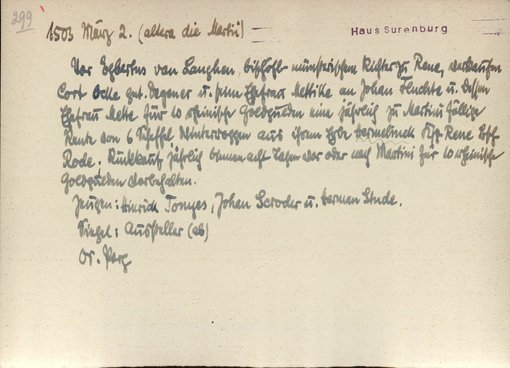 299
1503 März 2. (altera die Martii)
Haus Surenburg
Vor Egbertus van Langhen, bischöfl. münsterischen Richter z. Rene, verkaufen
Cort Ocke gnt. Degener u. seine Ehefrau Mettike an Johan Fluchte u. dessen
Ehefrau Mette für 10 rheinische Goldgulden eine jährlich zu Martini fällige
Rente von 6 Scheffel Winterroggen aus ihrem Erbe Ksp. Rene Bsch.
Rode. Rückkauf jährlich binnen acht Tagen vor oder nach Martini für 10 rheinische
Goldgulden vorbehalten.
Zeugen: Hinrick Tonyes, Johan Scroder u. Hermen Stude.
Siegel: Aussteller (ab)
Or. Perg